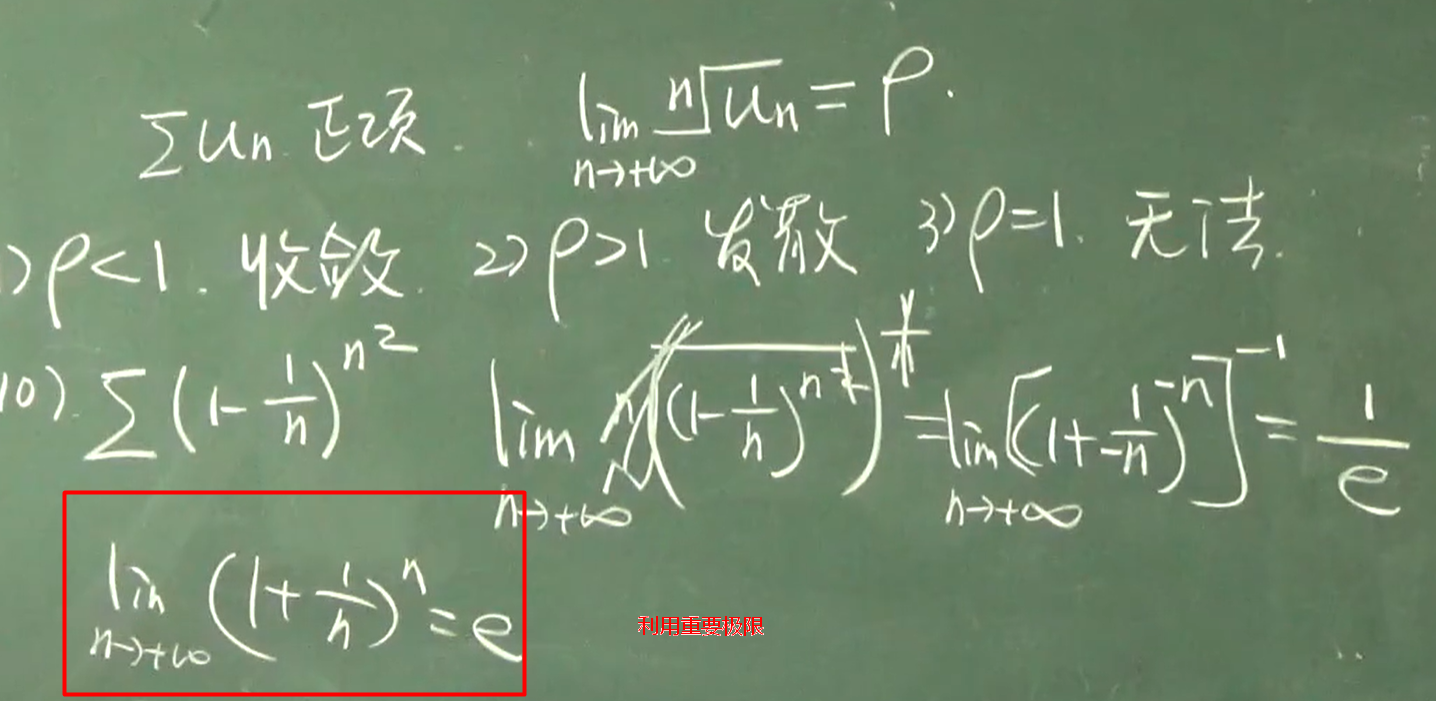 ∑uₙ 正项. lim n→+∞ ⁿ√uₙ = ρ.
1) ρ<1. 收敛. 2) ρ>1 发散 3) ρ=1. 无法.
10). ∑(1-1/n)^n² lim n→+∞ ((1-1/n)^n)^ = lim n→+∞ [(1+1/-n)^-n]^-1 = 1/e
lim n→+∞ (1+1/n)^n = e
利用重要极限